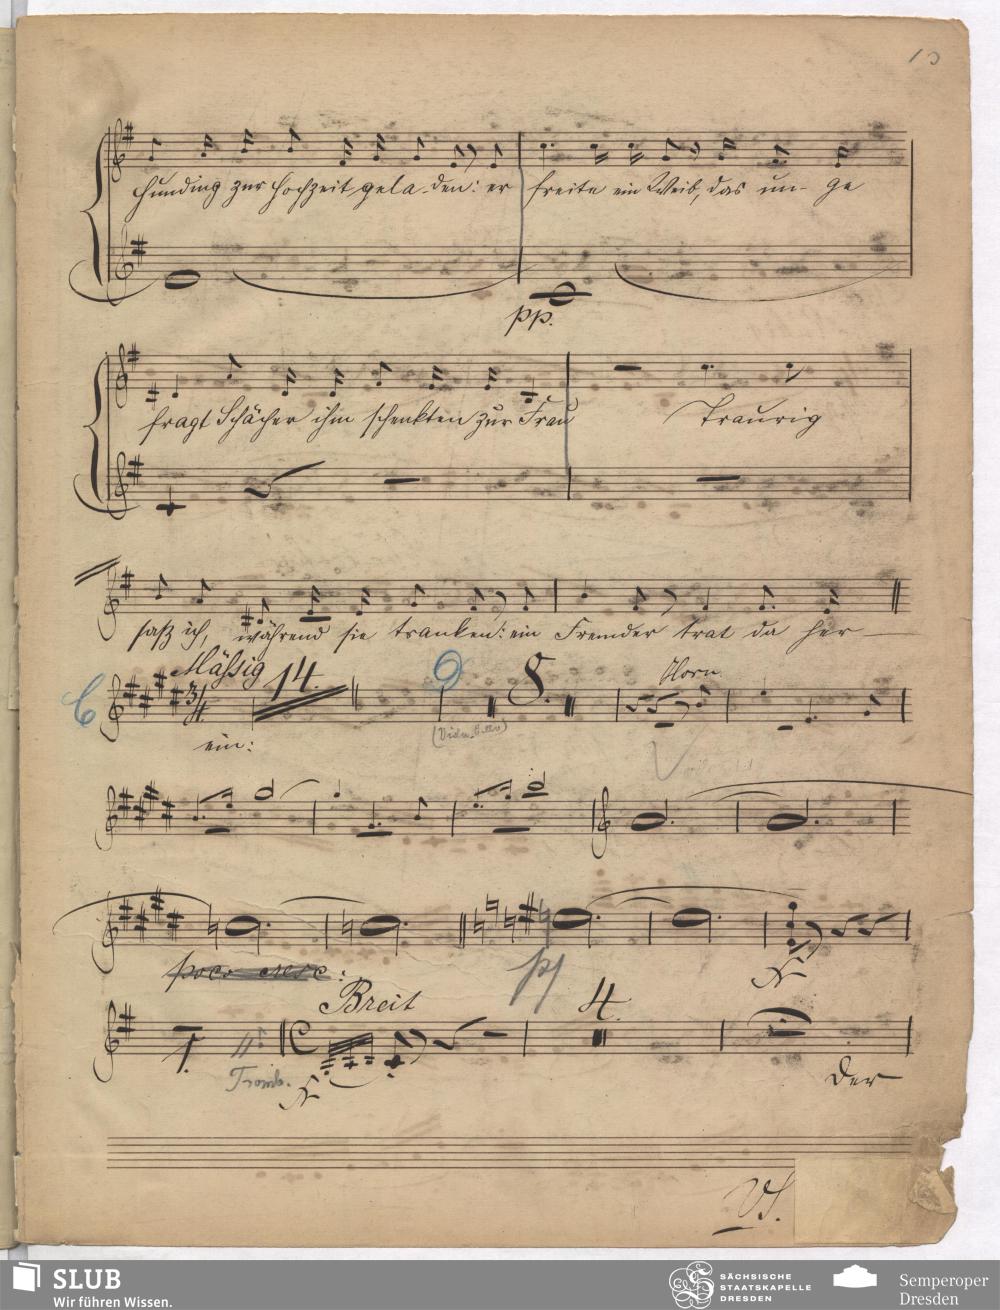 13
Hunding zur Hochzeit gela-den: er freite ein Weib, das un- ge
pp.
fragt Schächer ihm schenkten zur Frau Traurig
saß ich, während sie tranken: ein Fremder trat da her
Mäßig 14. 9 8. Horn
6 3/4
ein:
poco cresc.
p
Breit 4.
1.
Tromb.
Der
VS.
SLUB
Wir führen Wissen.
SÄCHSISCHE
STAATSKAPELLE
DRESDEN
Semperoper
Dresden